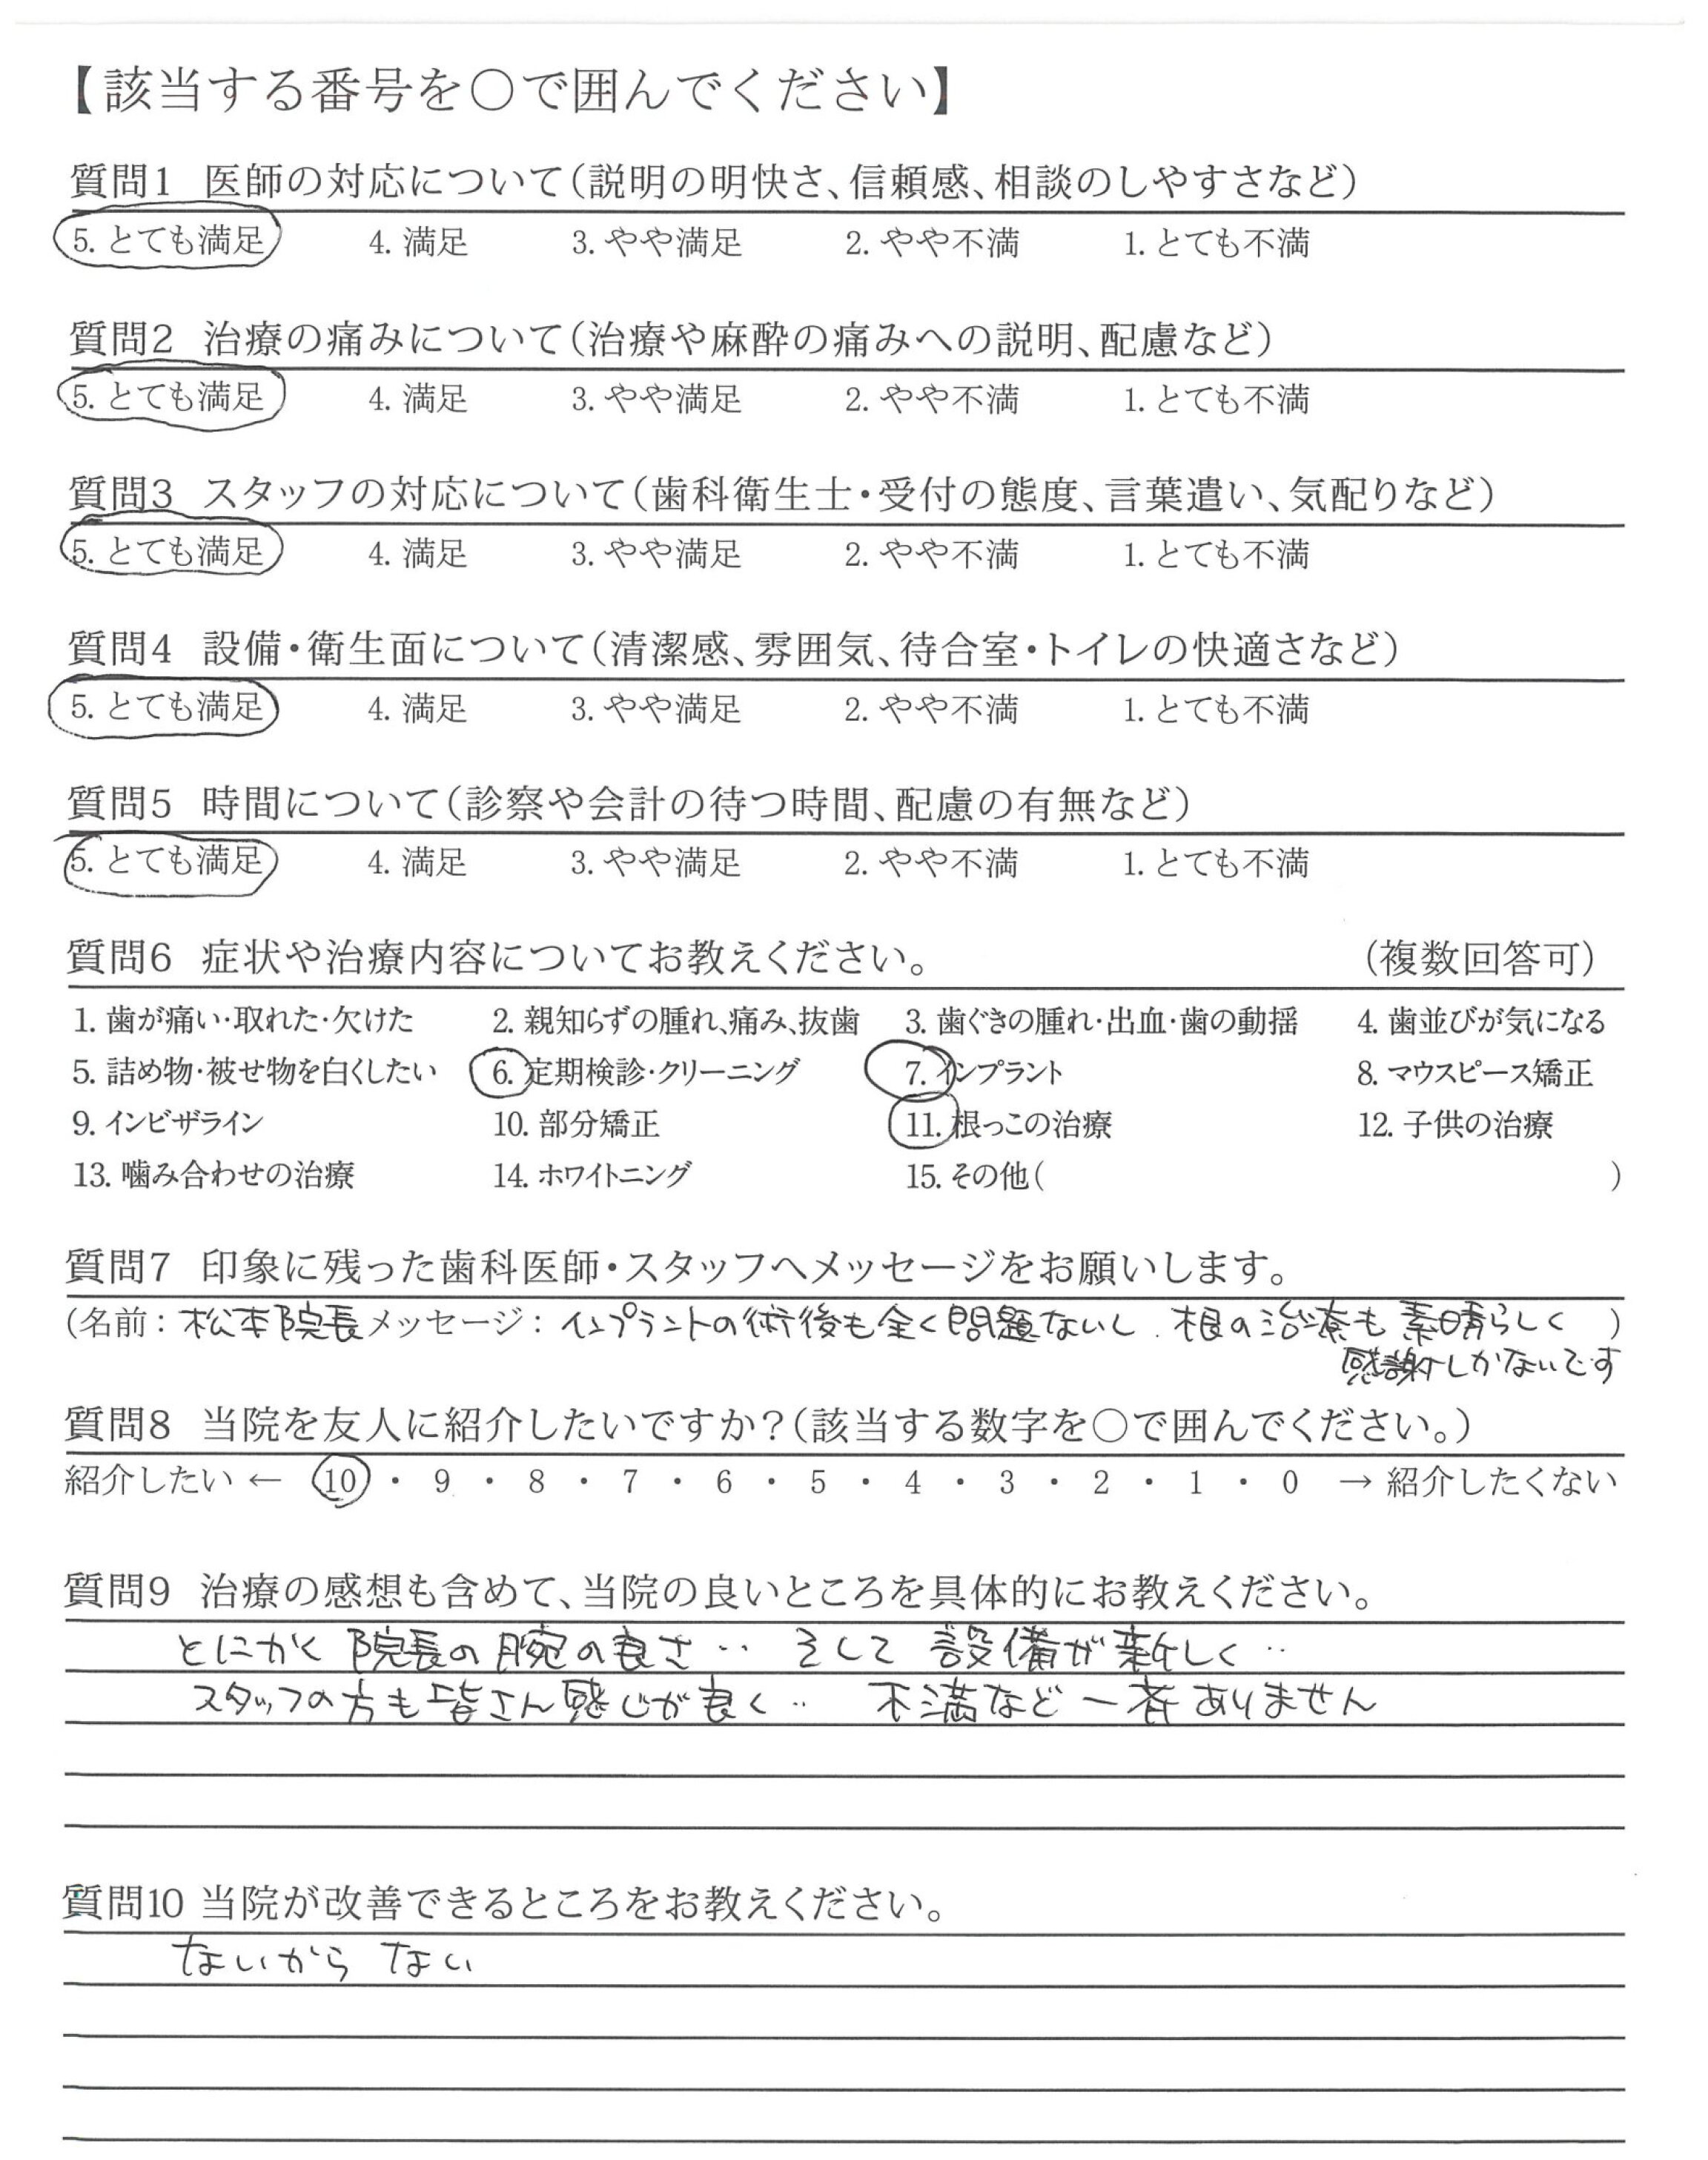 【該当する番号を○で囲んでください】
質問1 医師の対応について(説明の明快さ、信頼感、相談のしやすさなど)
5. とても満足 4. 満足 3. やや満足 2. やや不満 1. とても不満
質問2 治療の痛みについて(治療や麻酔の痛みへの説明、配慮など)
5. とても満足 4. 満足 3. やや満足 2. やや不満 1. とても不満
質問3 スタッフの対応について(歯科衛生士・受付の態度、言葉遣い、気配りなど)
5. とても満足 4. 満足 3. やや満足 2. やや不満 1. とても不満
質問4 設備・衛生面について(清潔感、雰囲気、待合室・トイレの快適さなど)
5. とても満足 4. 満足 3. やや満足 2. やや不満 1. とても不満
質問5 時間について(診察や会計の待つ時間、配慮の有無など)
5. とても満足 4. 満足 3. やや満足 2. やや不満 1. とても不満
質問6 症状や治療内容についてお教えください。 (複数回答可)
1. 歯が痛い・取れた・欠けた 2. 親知らずの腫れ、痛み、抜歯 3. 歯ぐきの腫れ・出血・歯の動揺 4. 歯並びが気になる
5. 詰め物・被せ物を白くしたい 6. 定期検診・クリーニング 7. インプラント 8. マウスピース矯正
9. インビザライン 10. 部分矯正 11. 根っこの治療 12. 子供の治療
13. 噛み合わせの治療 14. ホワイトニング 15. その他( )
質問7 印象に残った歯科医師・スタッフへメッセージをお願いします。
(名前: 松本院長 メッセージ: インプラントの術後も全く問題ないし. 根の治療も素晴らしく )
感謝しかないです
質問8 当院を友人に紹介したいですか?(該当する数字を○で囲んでください。)
紹介したい ← 10 ・ 9 ・ 8 ・ 7 ・ 6 ・ 5 ・ 4 ・ 3 ・ 2 ・ 1 ・ 0 → 紹介したくない
質問9 治療の感想も含めて、当院の良いところを具体的にお教えください。
とにかく 院長の腕の良さ‥ そして 設備が新しく‥
スタッフの方も皆さん感じが良く‥ 不満など一斉ありません
質問10 当院が改善できるところをお教えください。
ないから ない